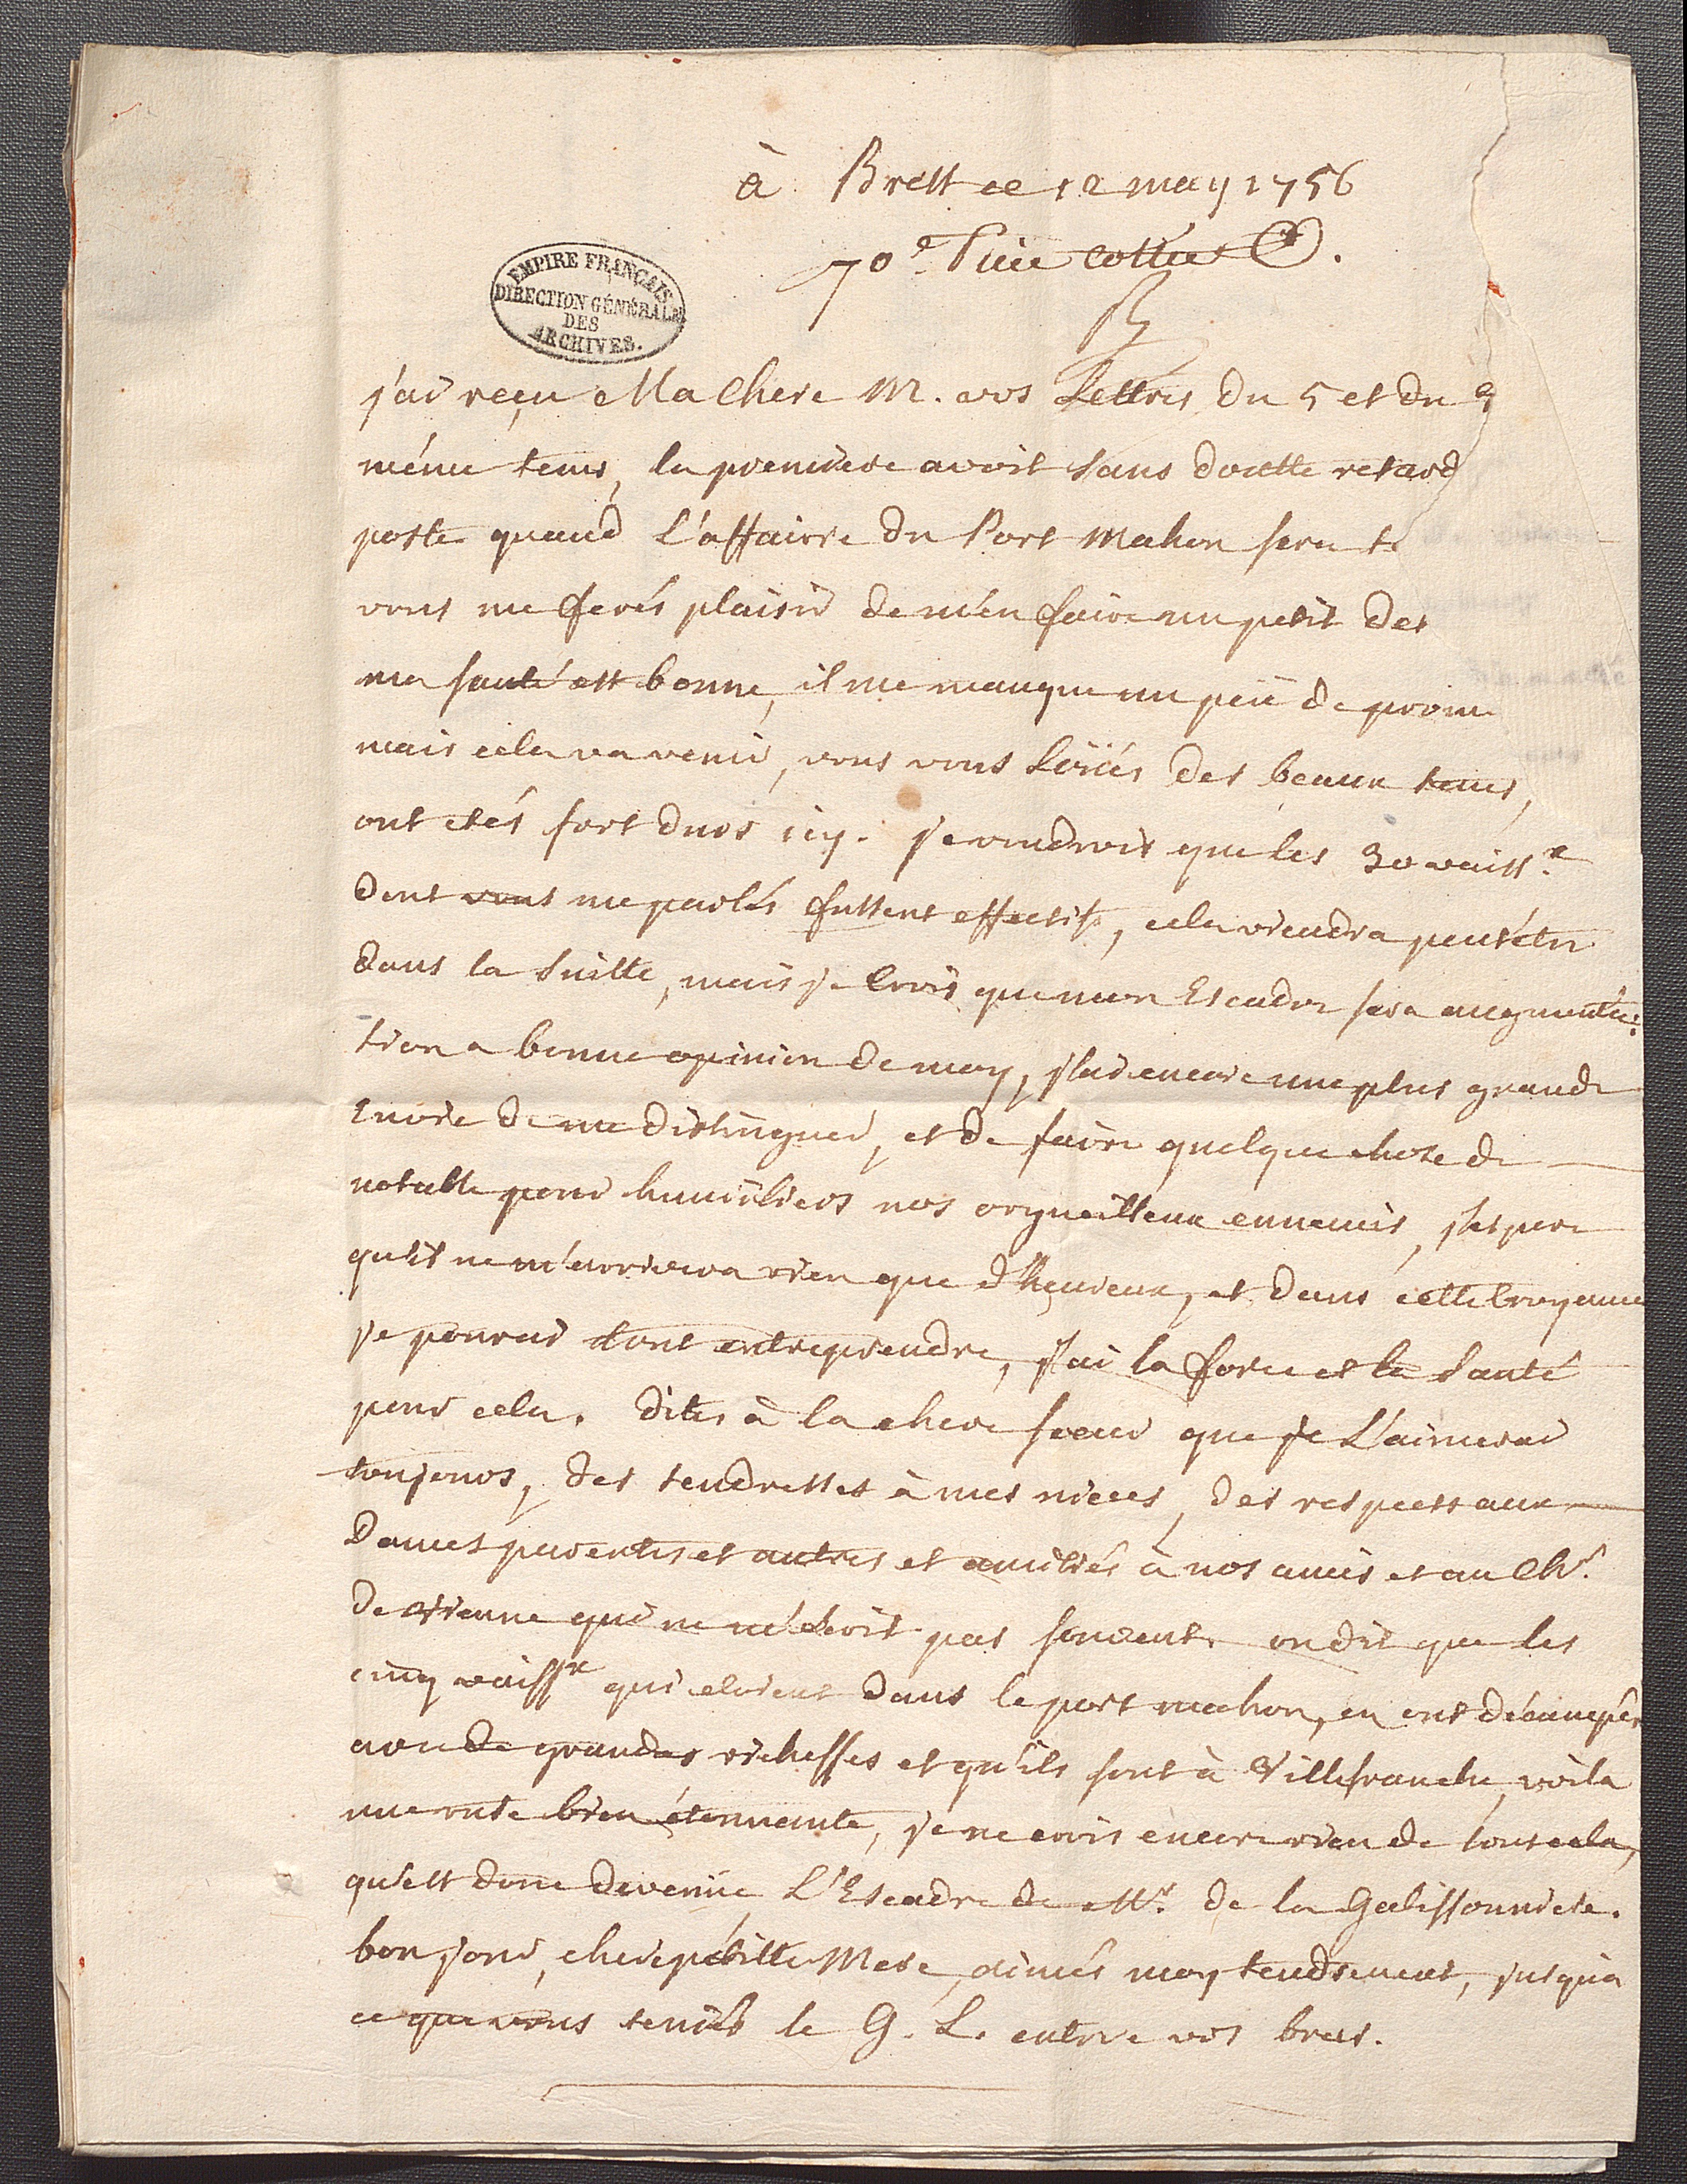 à Brest ce 12 may 1756
70e. Piece cottée
EMPIRE FRANÇAIS
DIRECTION GÉNÉRALE
DES
ARCHIVES.
j'ai reçu Ma Chere M. vos Lettres du 5 et du
méme tems, la premiere avoit sans doutte retard
poste quand L'affaire du Port Mahon sera
vous me ferés plaisir de m'en faire un petit des
ma santé est bonne, il me manque un peü de
mais cela va venir, vous vous loüés des beaux tems,
ont etés fort durs icy. je voudrois que les 30 vaissx
dont vous me parlés fussent effectifs, cela viendra peutétre
dans la suitte, mais je crois que mon Escadre sera augmentée:
tion a bonne opinion de moy, j'ai encore une plus grande
Envie de me distinguer, et de faire quelque chose de
notable pour humiliers nos orgueilleux ennemis, j'espere
qu'il ne m'arrivera rien que d'heureux, et dans cette croyance
je pourai tout entreprendre, j'ai la force et la santé
pour cela. dites à la chere soeur que je L'aimerai
toujours, des tendresses à mes nieces, des respects aux
Dames parentes et autres et amitiés à nos amis et au Chr.
de vienne qui ne m'écrit pas souvent. on dit que les
cinq vaissx qui etoient dans le port mahon, en ont décampés
avec de grandes richesses et qu'ils sont à Villefranche, voila
une ruse bien étonnante, je ne crois encore rien de tout cela,
qu'est donc devenüe L'Escadre de Mr. de la Galissonniere.
bon jour, chere petitte Mere, aimés moy tendrement, jusqu'a
ce que vous teniés le G. L. entre vos bras.